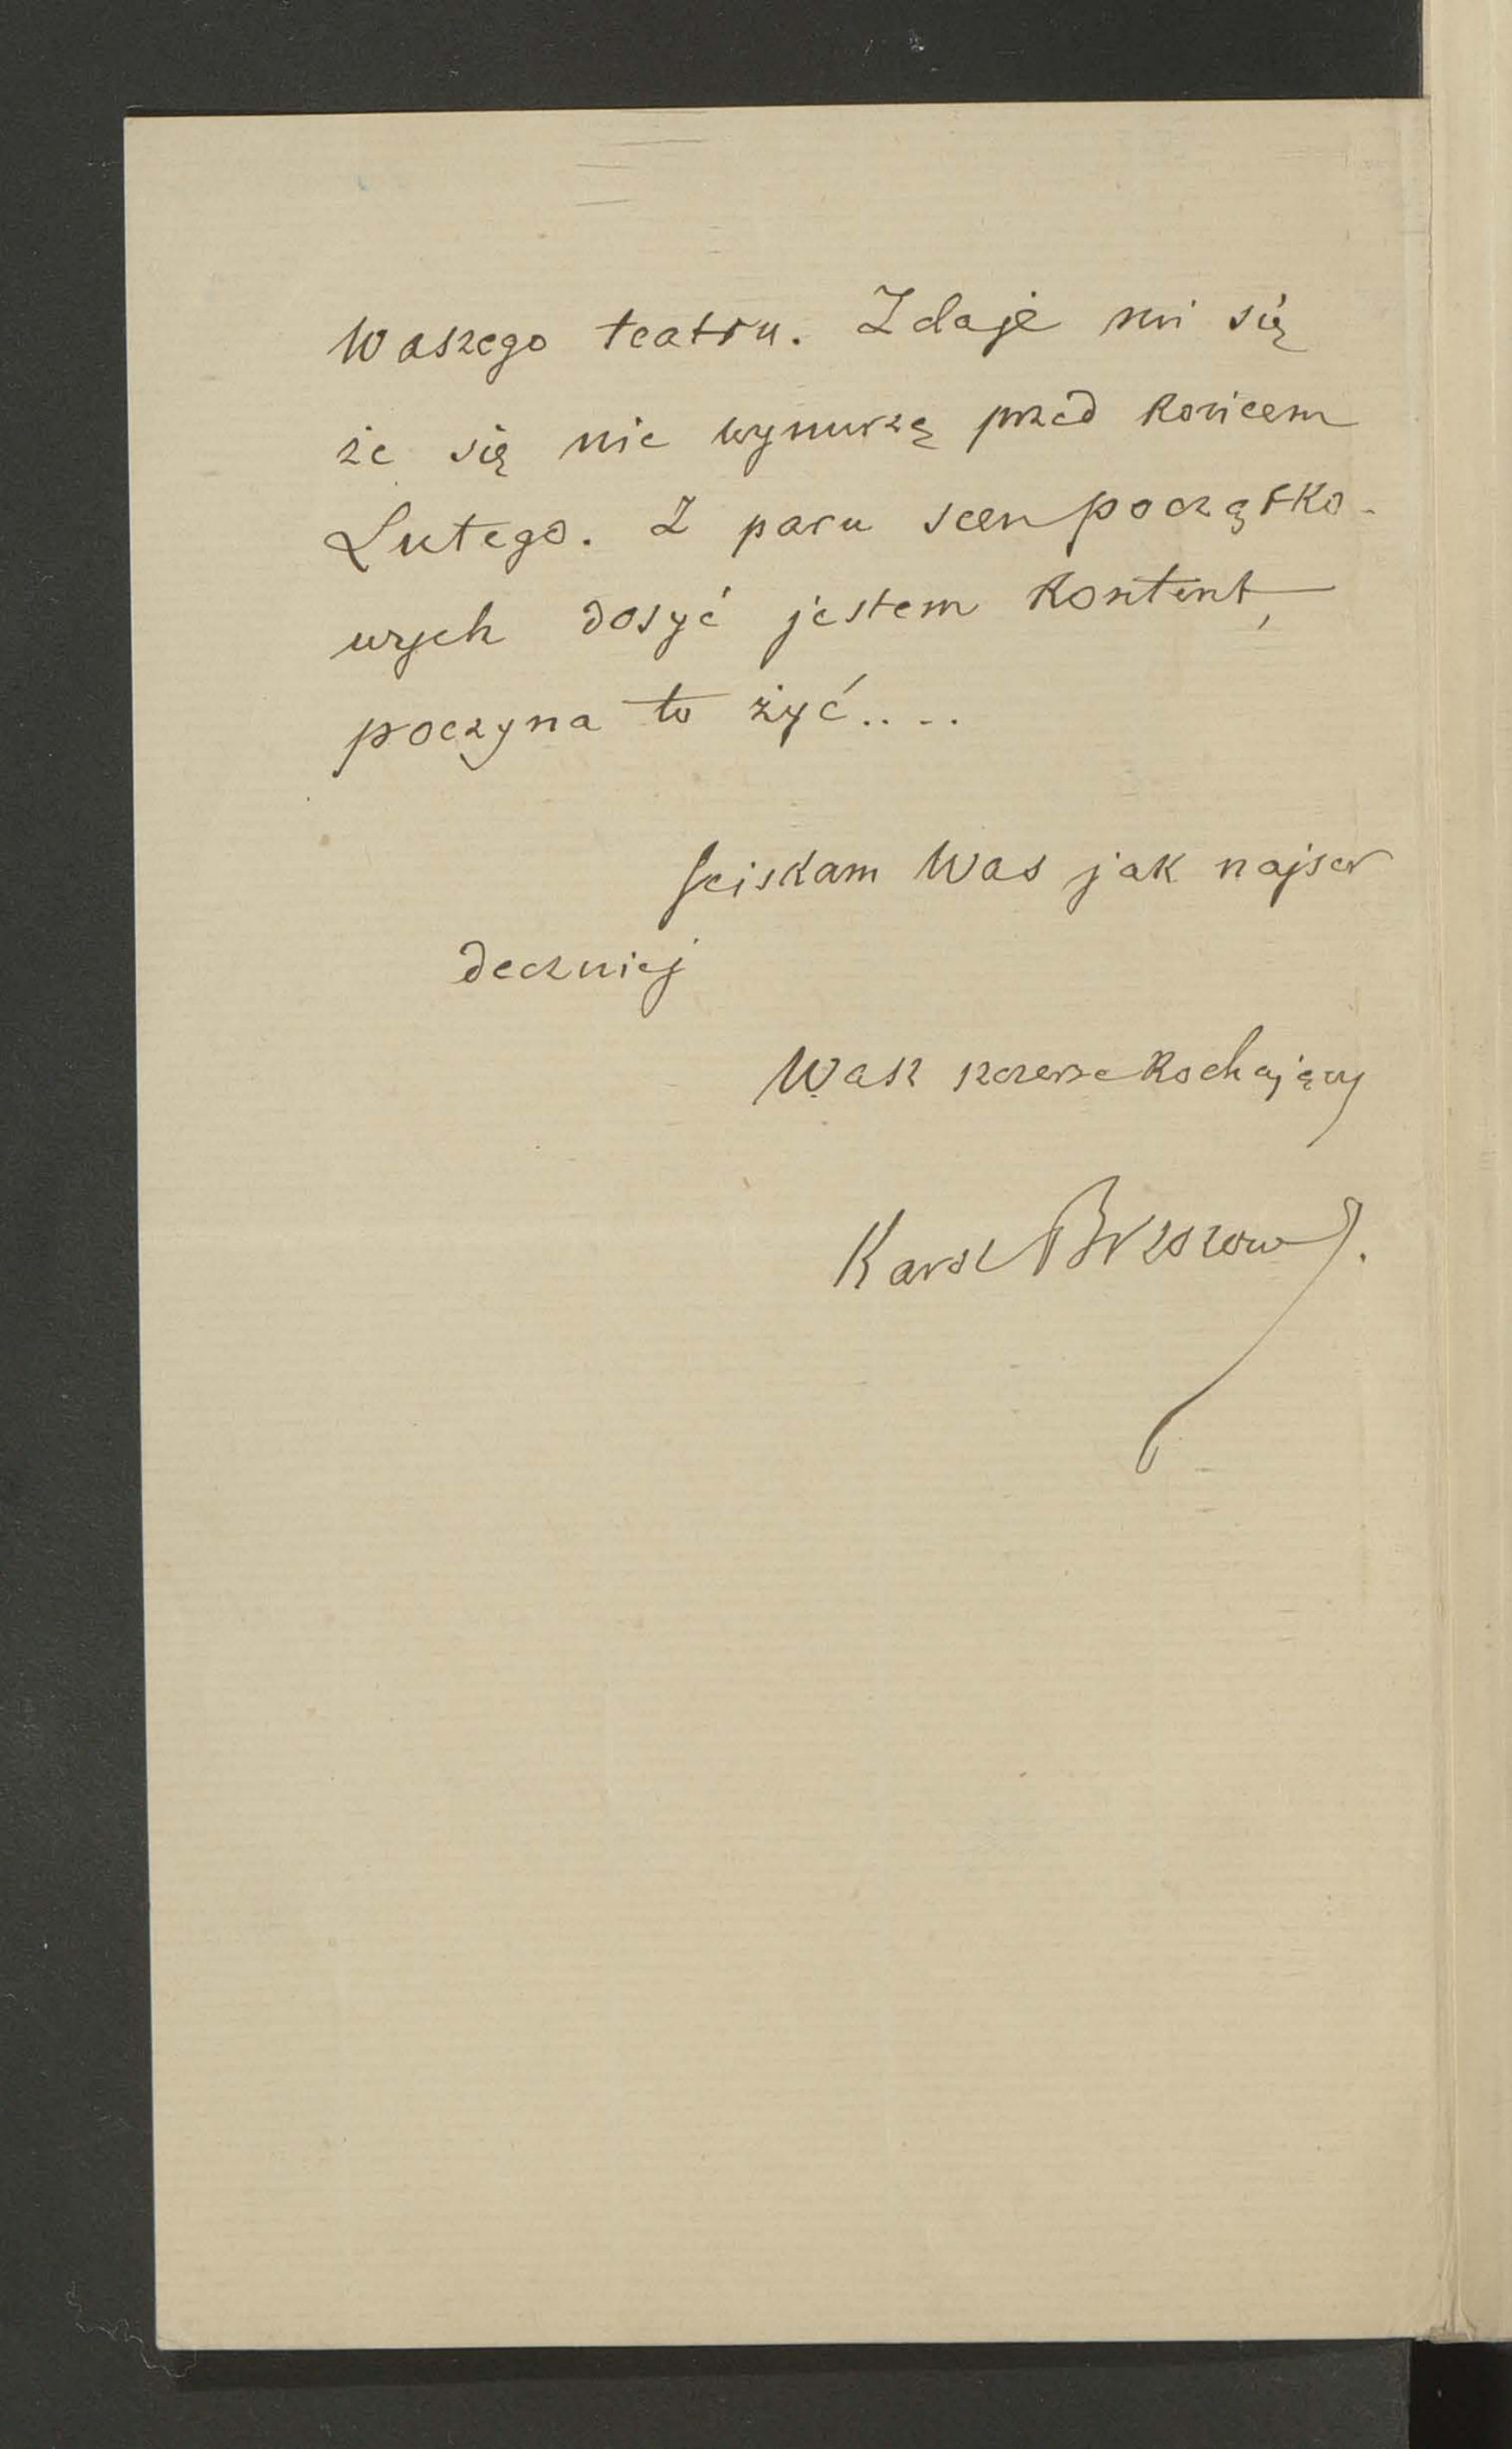 Waszego teatru. Zdaje mi się
że się nie wynurzę przed końcem
Lutego. Z paru scen początko-
wych dosyć jestem kontent,
poczyna to żyć....
Ściskam Was jak najser
deczniej
Wasz szczerze kochający
Karol Brzozow